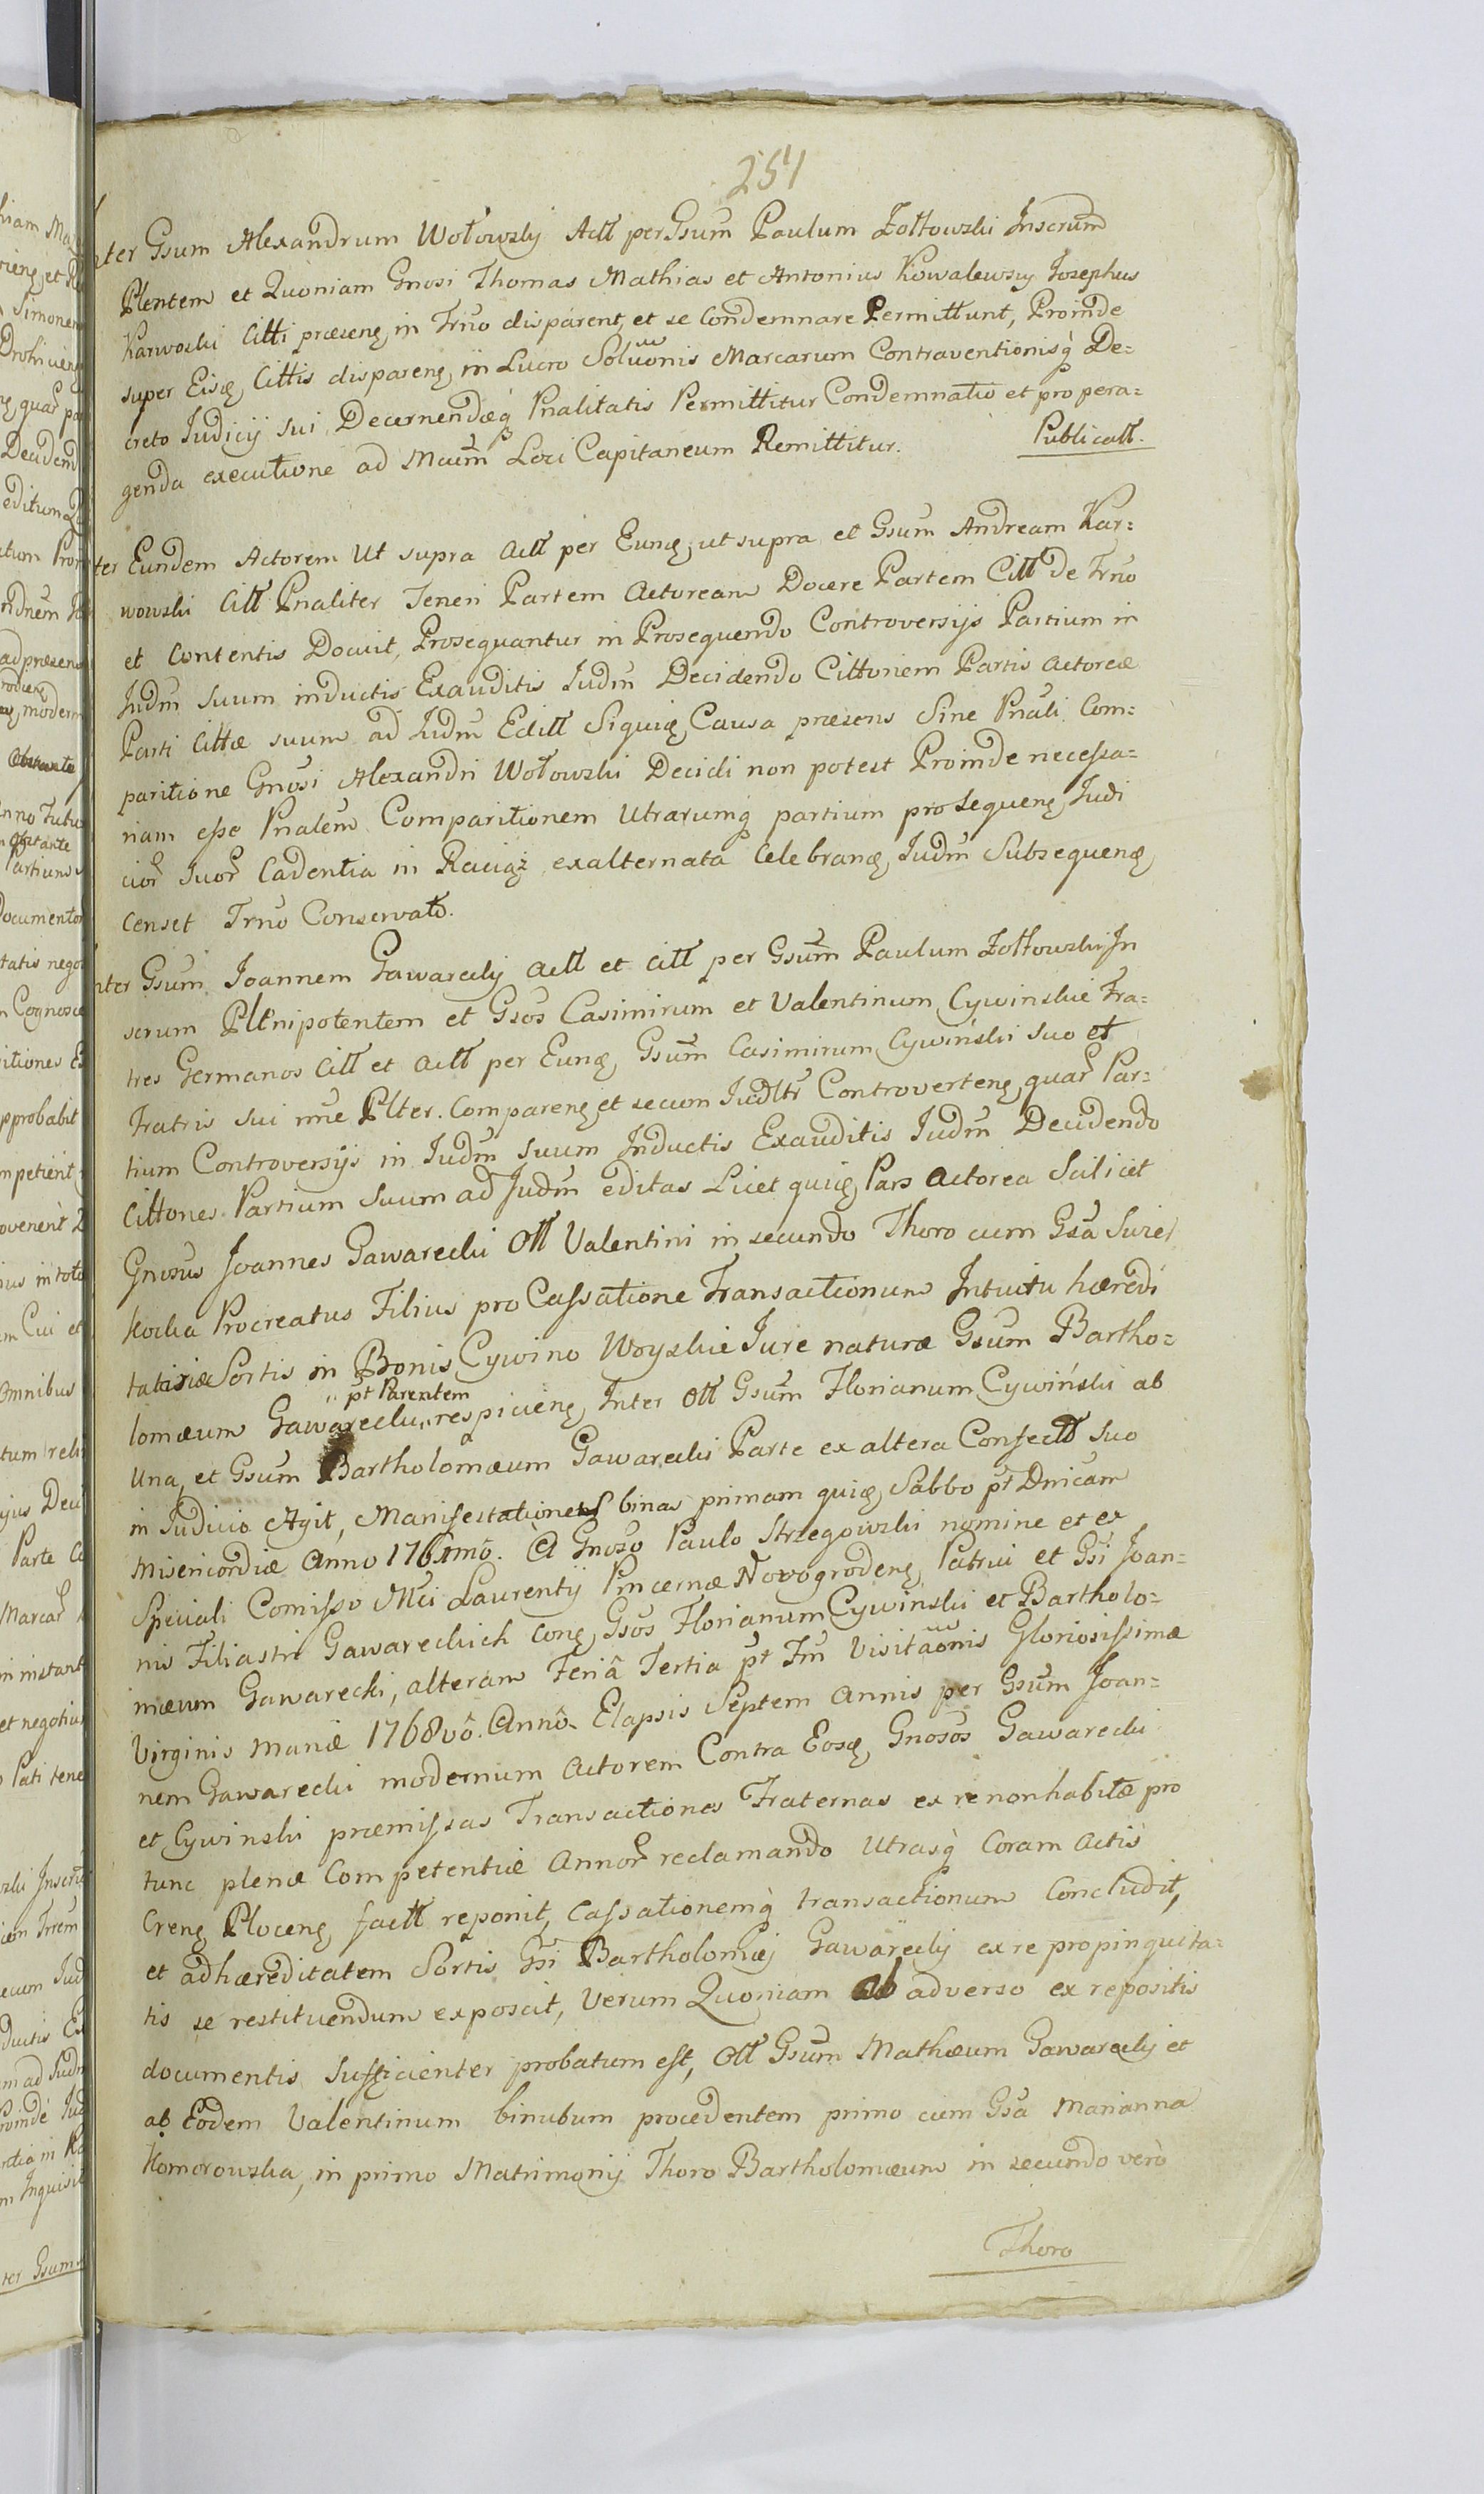 251
nter Gsum Alexandrum Wołowski Actt per Gsum Paulum Zołtowski Inscrum
Plentem et Quoniam Gnosi Thomas Mathias et Antonius Kowalewscy Iosephus
Karwoski Citti præsenę in Trno disparent, et se Condemnare Permittunt, Proinde
super Eisdę Cittis disparenę in Lucro Solvonis Marcarum Contraventionisq De=
creto Iudicij sui Decernendæq Pnalitatis Permittitur Condemnatio et pro pera=
genda executione ad Mcum Loci Capitaneum Remittitur.
Publicatt.
ter Eundem Actorem Ut supra Actt per Eundę ut supra et Gsum Andream Kar=
wowski Citt Pnaliter Teneri Partem Actoream Docere Partem Citt De Trno
et Contentis Docuit, Prosequantur in Prosequendo Controversijs Partium in
Iudm Suum inductis Exauditis Iudm Decidendo Cittonem Partis Actoreæ
Parti Cittæ suum ad Iudm Editt Siquię Causa præsens Sine Pnali Com=
paritione Gnosi Alexandri Wołowski Decidi non potest Proinde necessa=
riam esse Pnalem Comparitionem Utrarumq partium prosequenę Iudi
cior Suor Cadentia in Raciąż exalternata Celebranę Iudm Subsequenę
Censet Trno Conservato.
nter Gsum Ioannem Gawarecki Actt et Citt per Gsum Paulum Zołtowski In
scrum Plenipotentem et Gsos Casimirum et Valentinum Cywinskie Fra=
tres Germanos Citt et Actt per Eundę Gsum Casimirum Cywiński suo et
Fratris sui nne Plter. Comparenę et secum Iudltr Controvertenę quar Par=
tium Controversijs in Iudm suum Inductis Exauditis Iudm Decidendo
Cittones Partium Suum ad Iudm editas Licet quię Pars Actorea Scilicet
Gnosus Joannes Gawarecki Ott Valentini in secundo Thoro cum Gsa Surie
kocka Procreatus Filius pro Cassatione Transactionum Intuitu hæredi
tariæ Sortis in Bonis Cywino Woyskie Iure naturæ Gsum Bartho=
pt Parentem
lomæum Gawarecki respicienę Inter Ott Gsum Florianum Cywiński ab
una, et Gsum Bartholomæum Gawarecki Parte ex altera Confectt Suo
in Iudicio Agit, Manifestationes binas primam quię Sabbo pt Dnicam
Misericordiæ Anno 1761mo. A Gnoso Paulo Strzegowski nomine et ex
Speciali Comisso Mci Laurentij Pincernæ Nowogrodenę Patrui et Gsi Joan=
nis Filiastri Gawareckich Conę Gsos Florianum Cywinski et Bartholo=
mæum Gawarecki, alteram Feriâ Tertia pt Fm Visitaonis Gloriosissimæ
Virginis Mariæ 1768vô. Annô. Elapsis Septem Annis per Gsum Joan=
nem Gawarecki modernum Actorem Contra Eosdę Gnosos Gawarecki
et Cywinski præmissas Transactiones Fraternas ex re non habitæ pro
tunc plenæ Competentiæ Annor reclamando Utrasq Coram Actis
Crenę Plocenę factt reponit, Cassationemq transactionum Concludit,
et ad hæreditatem Sortis Gsi Bartholomæi Gawarecki ex re propinquita=
tis se restituendum exposcit, Verum Quoniam ab adverso ex repositis
documentis sufficienter probatum est, Ott Gsum Mathæum Gawarecki et
ab Eodem Valentinum binubum procedentem primo cum Gsa Marianna
Komorowska, in primo Matrimonij Thoro Bartholomæum in secundo verò
Thoro